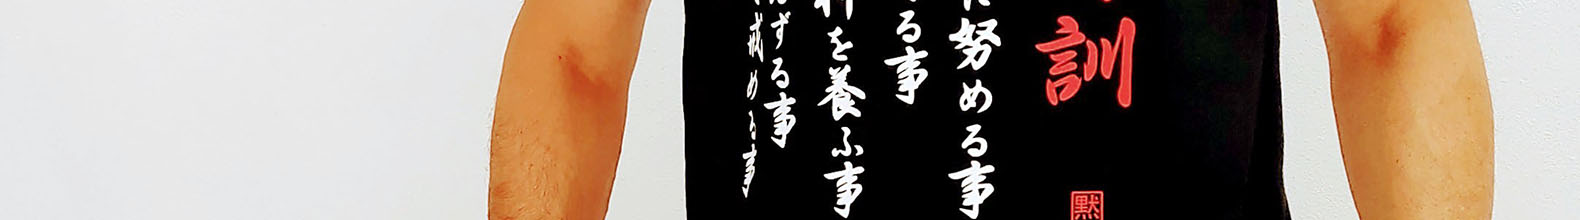 訓
黙
に努める事
る事
神を養ふ事
ずる事
戒める事